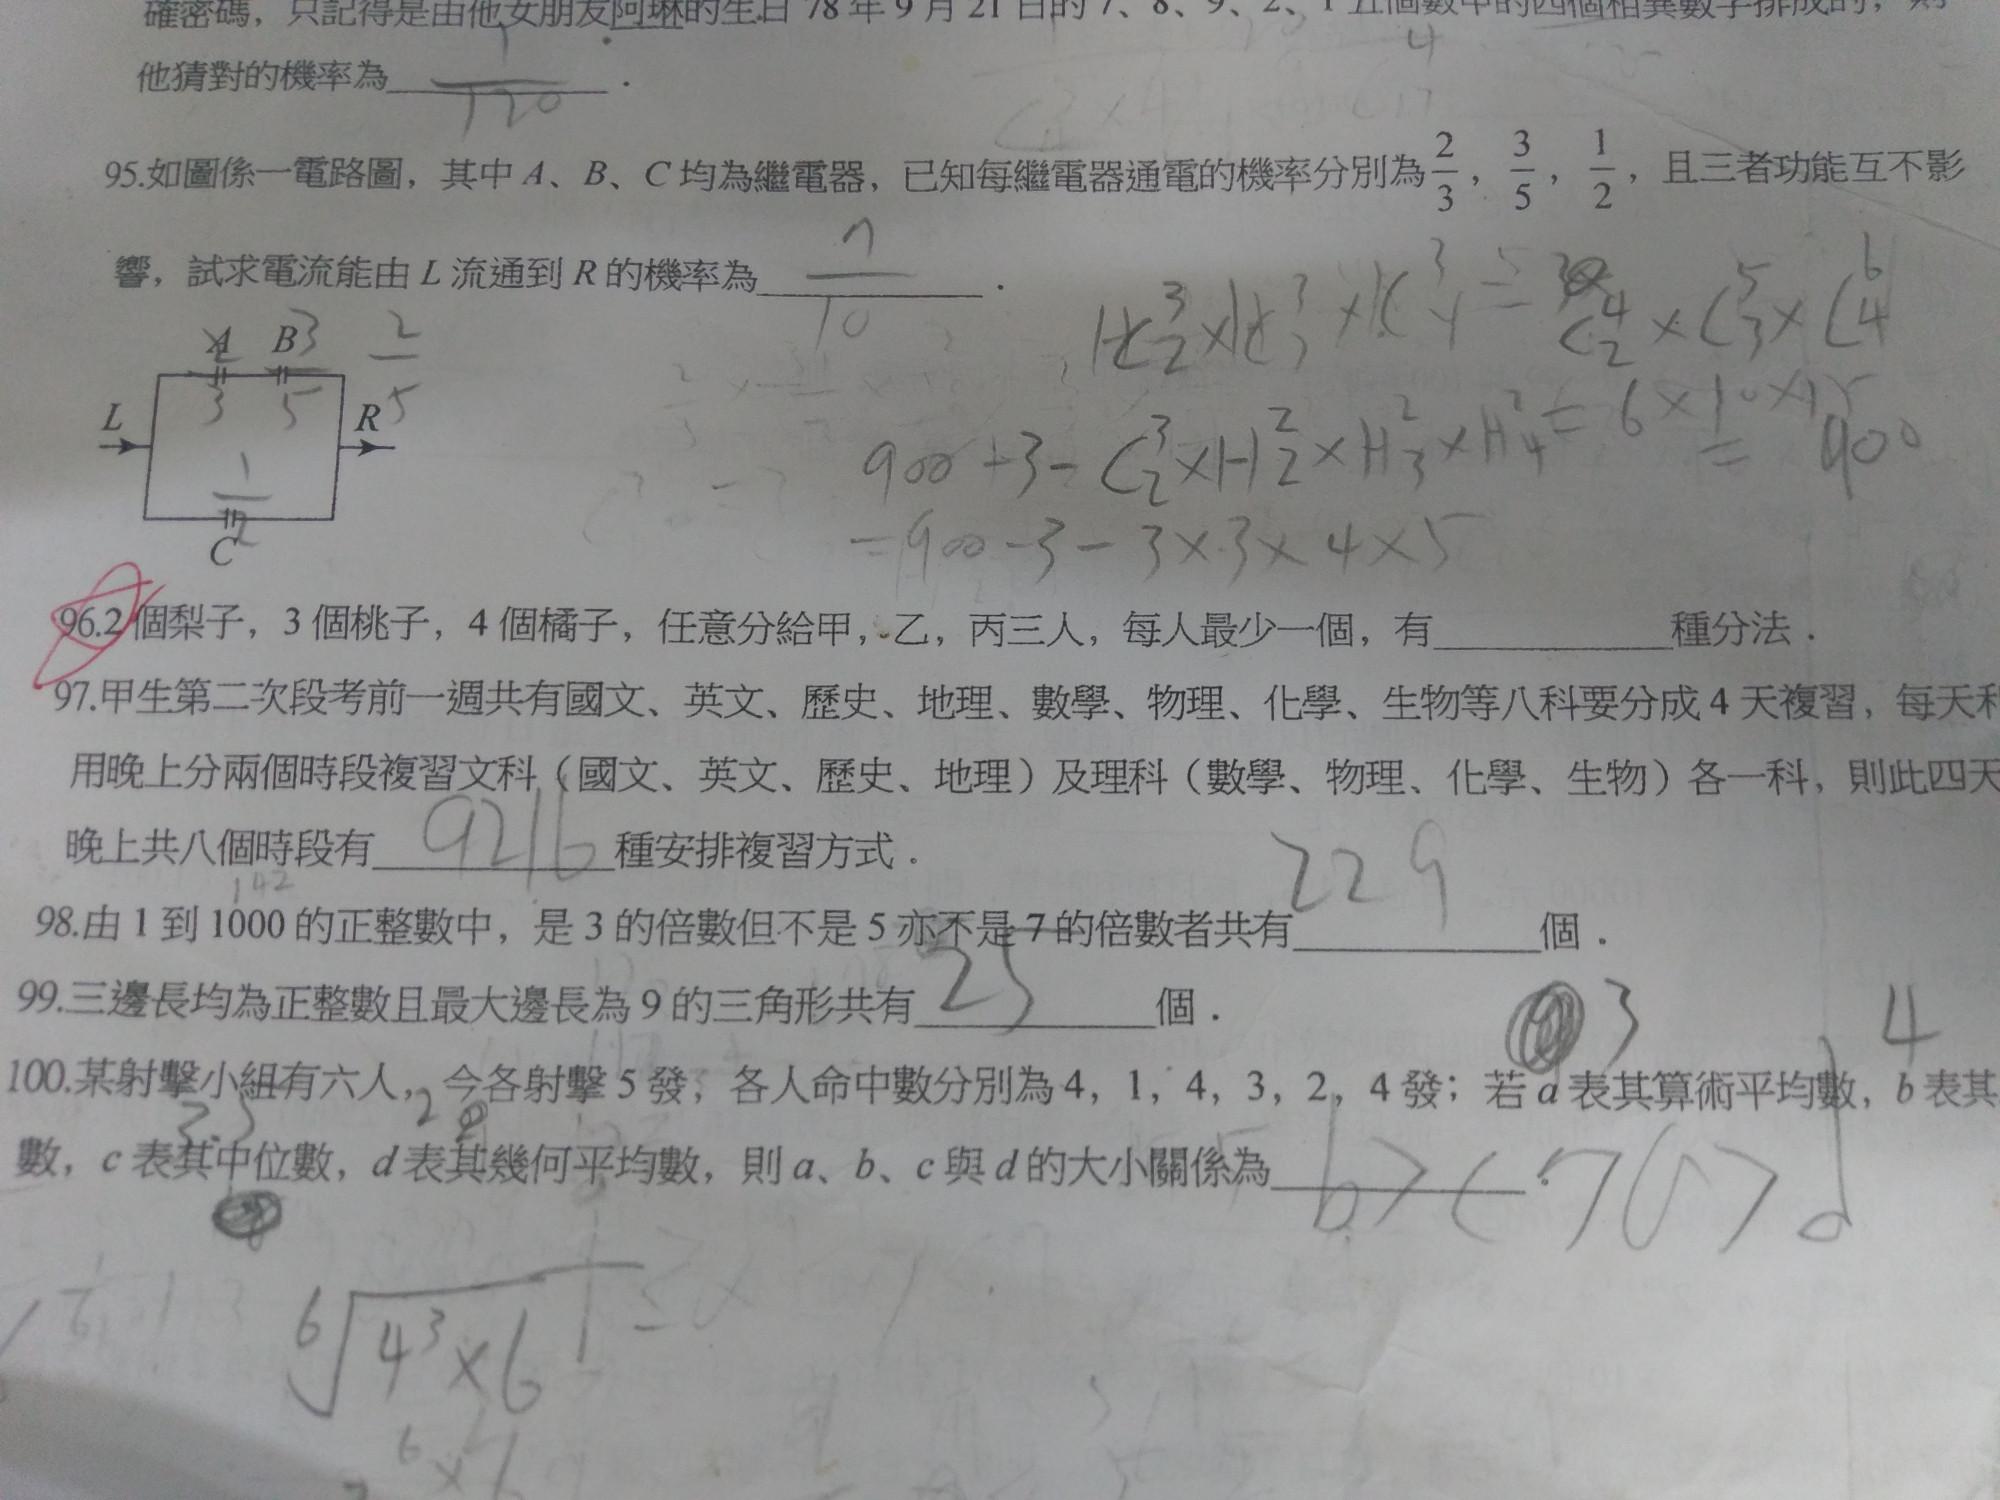 確密碼，只記得是由他女朋友阿琳的生日78年9月21日的7、8、9、2、1五個數中的四個相異數字排成的，則
他猜對的機率為 1/120 .
95.如圖係一電路圖，其中A、B、C均為繼電器，已知每繼電器通電的機率分別為2/3，3/5，1/2，且三者功能互不影
響，試求電流能由L流通到R的機率為 7/10 .
A B
2/3 3/5 2/5
L R
1/2
C
= C^4_2 × C^5_3 × C^6_4
= 6×10×15
= 900
900+3-C^3_2×H^2_2×H^2_3×H^2_4
=900-3-3×3×4×5
96.2個梨子，3個桃子，4個橘子，任意分給甲，乙，丙三人，每人最少一個，有 種分法．
97.甲生第二次段考前一週共有國文、英文、歷史、地理、數學、物理、化學、生物等八科要分成4天複習，每天利
用晚上分兩個時段複習文科（國文、英文、歷史、地理）及理科（數學、物理、化學、生物）各一科，則此四天
晚上共八個時段有 9216 種安排複習方式．
142
98.由1到1000的正整數中，是3的倍數但不是5亦不是7的倍數者共有 229 個．
99.三邊長均為正整數且最大邊長為9的三角形共有 25 個．
3 4
100.某射擊小組有六人，今各射擊5發，各人命中數分別為4，1，4，3，2，4發；若a表其算術平均數，b表其
3.5
數，c表其中位數，d表其幾何平均數，則a、b、c與d的大小關係為 b>c>a>d .
6√4^3×6